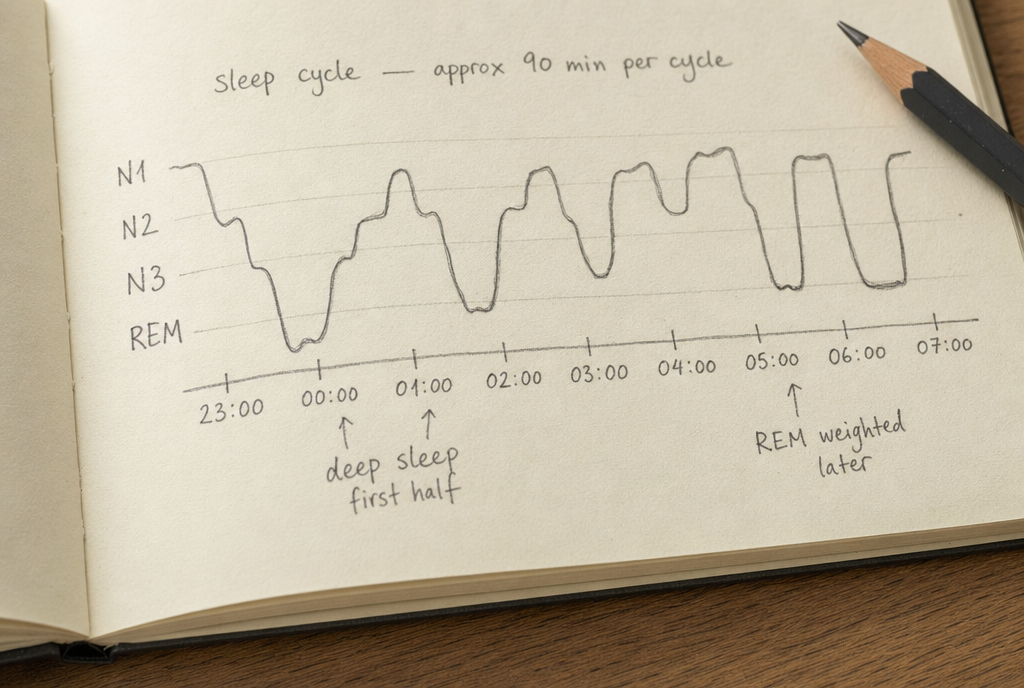 sleep cycle — approx 90 min per cycle
N1
N2
N3
REM
23:00 00:00 01:00 02:00 03:00 04:00 05:00 06:00 07:00
↑ ↑ ↑
deep sleep
first half
REM weighted
later